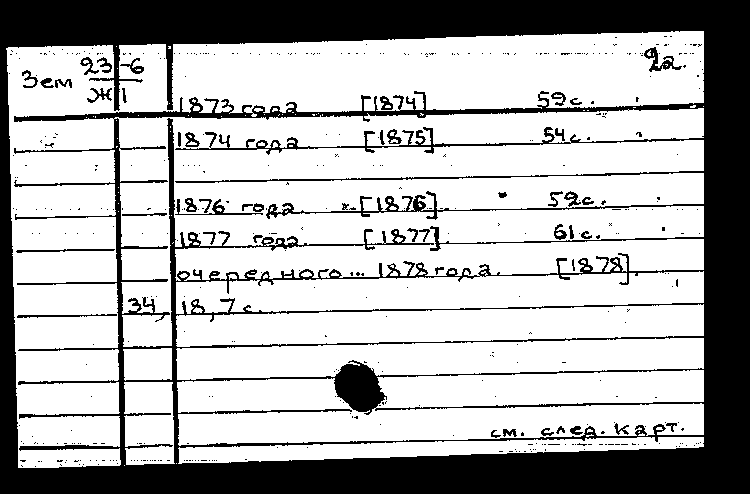 2а.
Зем 23-6
Ж1
1873 года [1874] 59 с.
1874 года [1875] 54 с.
1876 года [1876] 52 с.
1877 года [1877] 61 с.
очередного... 1878 года. [1878].
34, 18, 7 с.
см. след. карт.